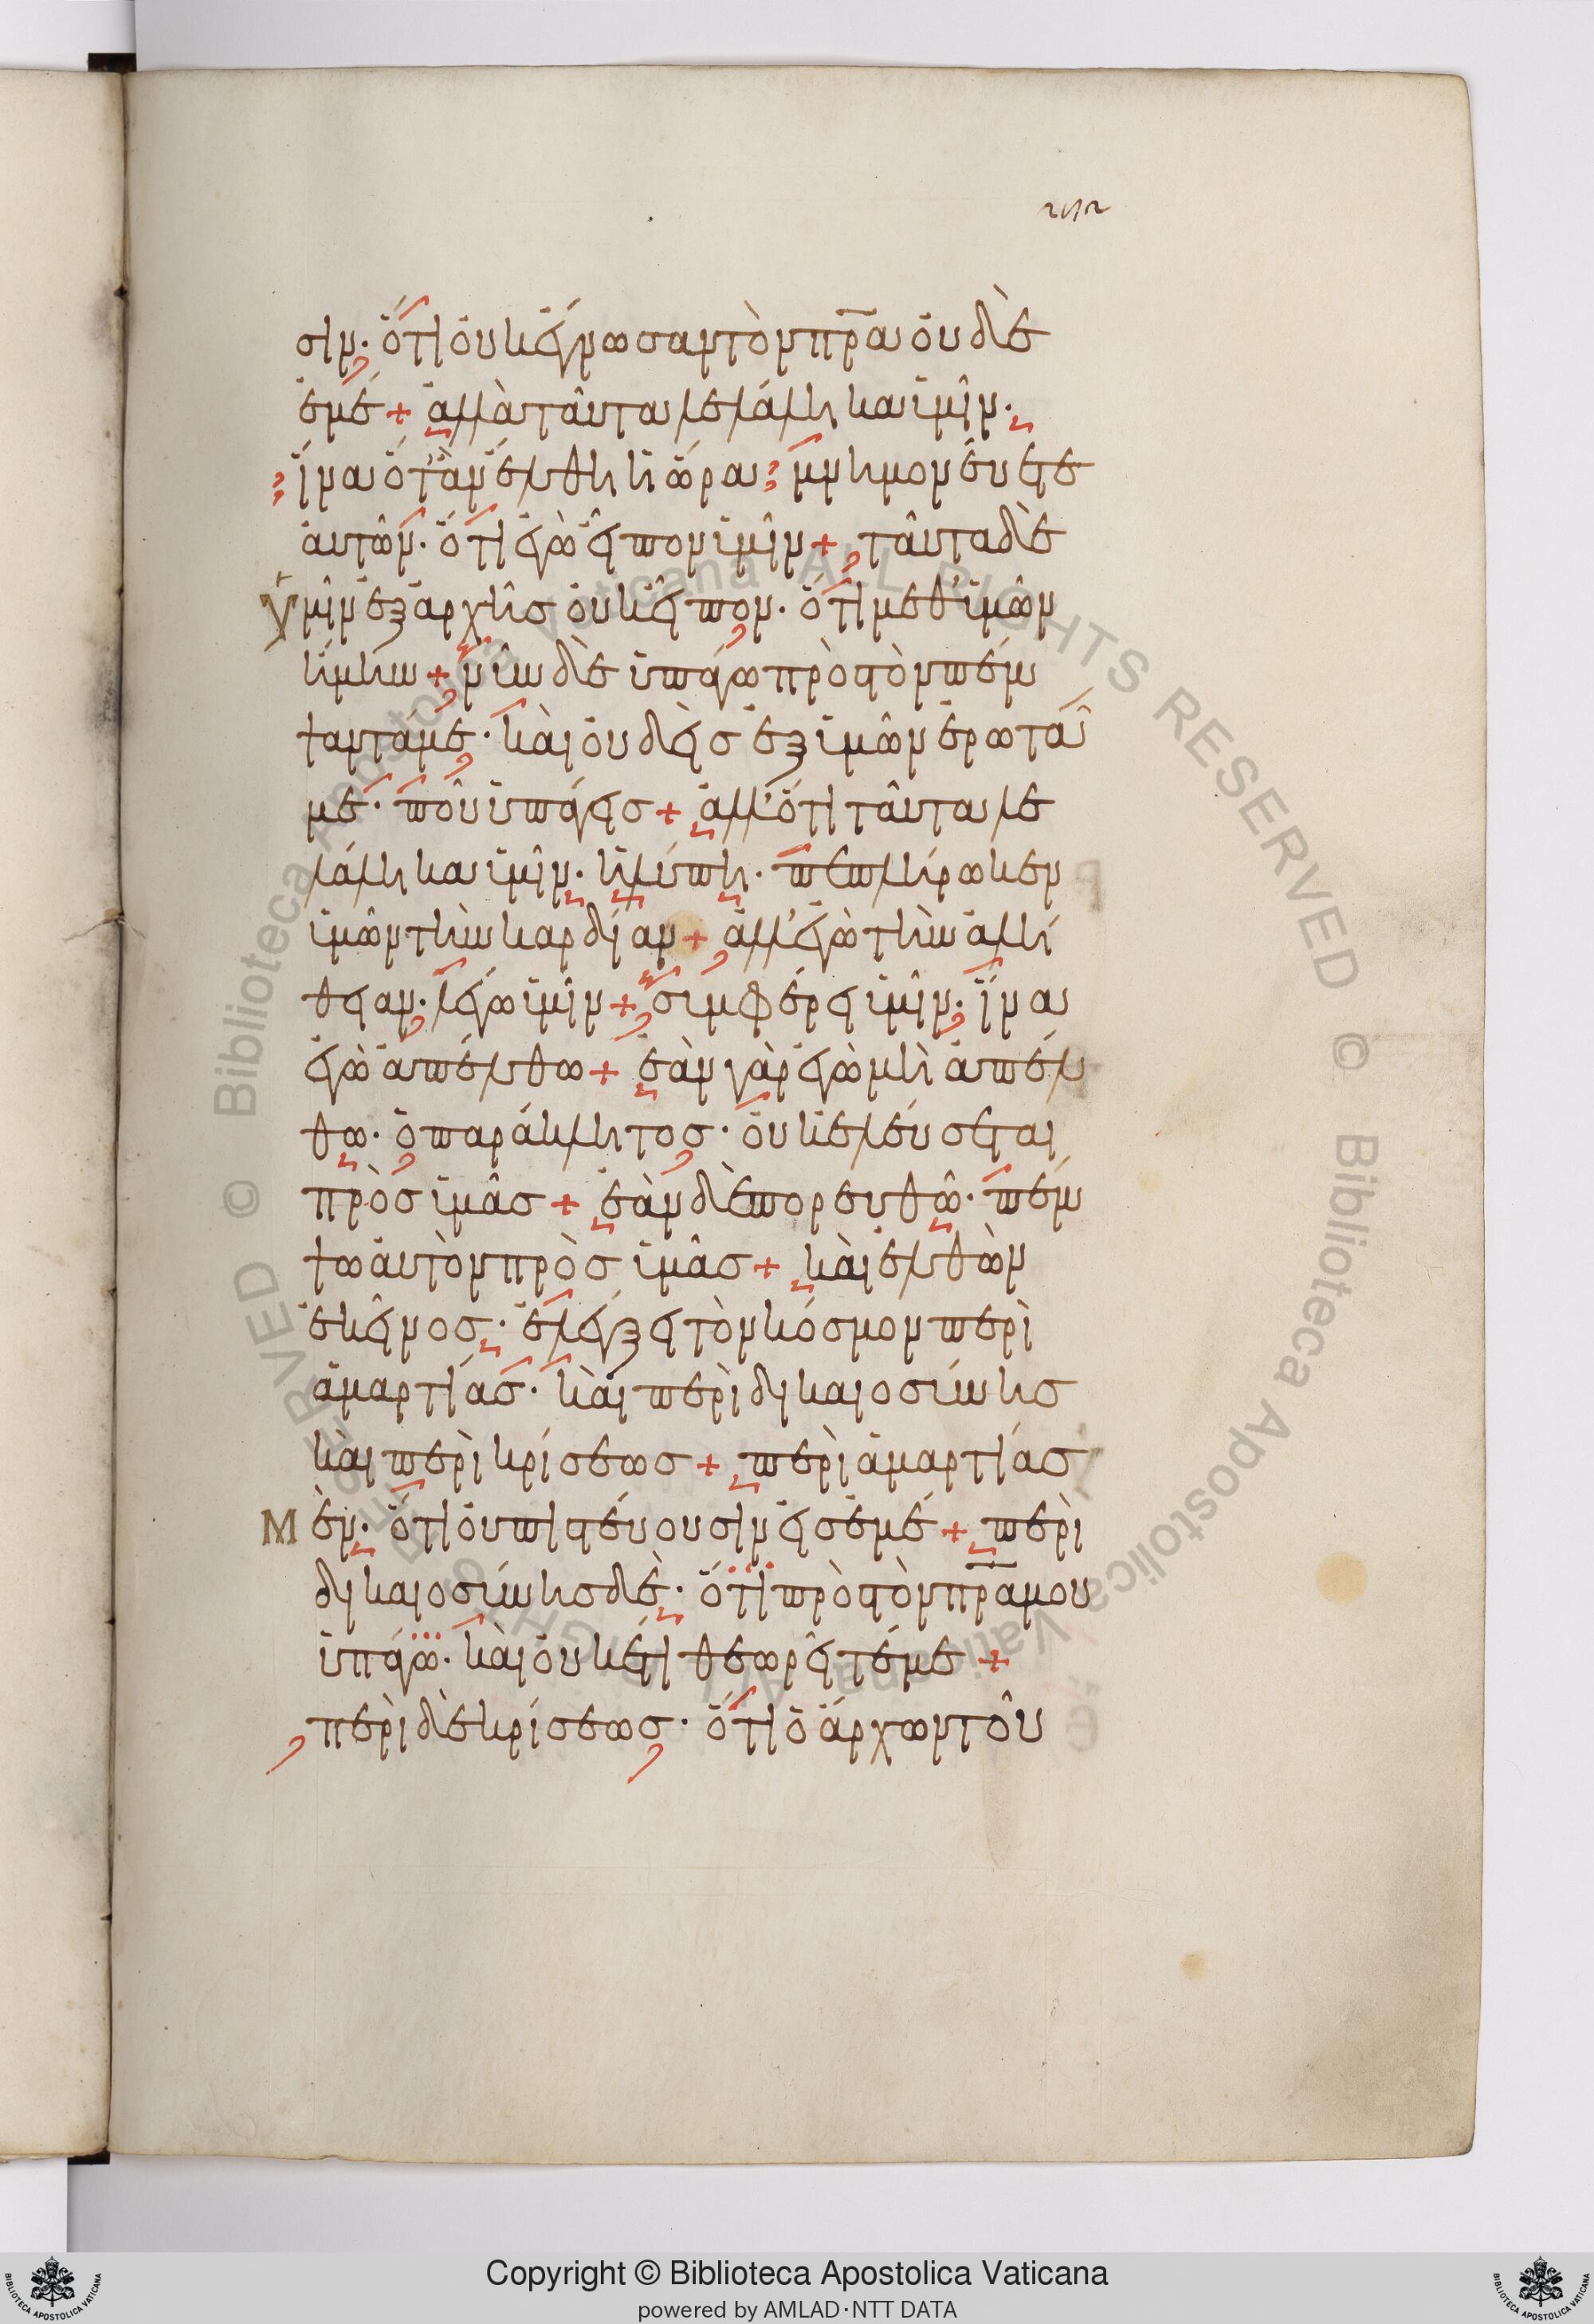 σιν· ὅτι οὐκ ἔγνωσαν τὸν πρ̅α οὐδὲ
ἐμέ + ἀλλὰ ταῦτα λελάληκα ὑμῖν·
ἵνα ὅταν ἔλθη ἡ ὥρα μνημονεύετε
αὐτῶν· ὅτι ἐγὼ εἶπον ὑμῖν + ταῦτα δὲ
ὑμῖν ἐξ ἀρχῆς οὐκ εἶπον· ὅτι μεθ' ὑμῶν
ἤμην + νῦν δὲ ὑπάγω πρὸς τὸν πέμ
ψαντά με· καὶ οὐδεὶς ἐξ ὑμῶν ἐρωτᾶ
με· ποῦ ὑπάγεις + ἀλλ' ὅτι ταῦτα λε
λάληκα ὑμῖν· ἡ λύπη· πεπλήρωκεν
ὑμῶν τὴν καρδίαν + ἀλλ' ἐγὼ τὴν ἀλή
θειαν· λέγω ὑμῖν + συμφέρει ὑμῖν· ἵνα
ἐγὼ ἀπέλθω + ἐὰν γὰρ ἐγὼ μὴ ἀπέλ
θω· ὁ παράκλητος· οὐκ ἐλεύσεται
πρὸς ὑμᾶς + ἐὰν δὲ πορευθῶ· πέμ
ψω αὐτὸν πρὸς ὑμᾶς + καὶ ἐλθὼν
ἐκεῖνος· ἐλέγξει τὸν κόσμον περὶ
ἁμαρτίας· καὶ περὶ δικαιοσύνης
καὶ περὶ κρίσεως + περὶ ἁμαρτίας
Μὲν· ὅτι οὐ πιστεύουσιν εἰς ἐμέ + περὶ
δικαιοσύνης δὲ· ὅτι πρὸς τὸν πρ̅α μου
ὑπάγω· καὶ οὐκ ἔτι θεωρεῖτέ με +
περὶ δὲ κρίσεως· ὅτι ὁ ἄρχων τοῦ
© Biblioteca Apostolica Vaticana ALL RIGHTS RESERVED © Biblioteca Apostolica Vaticana ALL RIGHTS RESERVED
Copyright © Biblioteca Apostolica Vaticana
powered by AMLAD·NTT DATA
BIBLIOTECA APOSTOLICA VATICANA
BIBLIOTECA APOSTOLICA VATICANA